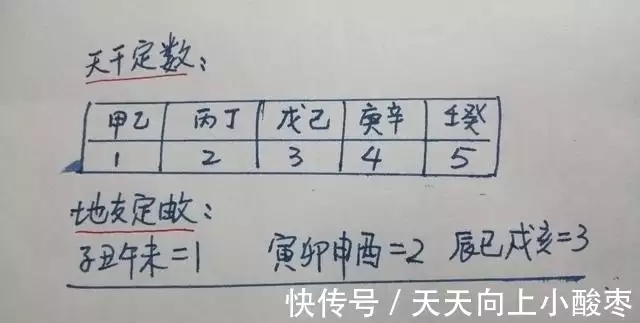 天干定数：
甲乙 丙丁 戊己 庚辛 壬癸
1 2 3 4 5
地支定数：
子丑午未=1 寅卯申酉=2 辰巳戌亥=3
快传号 / 天天向上小酸枣